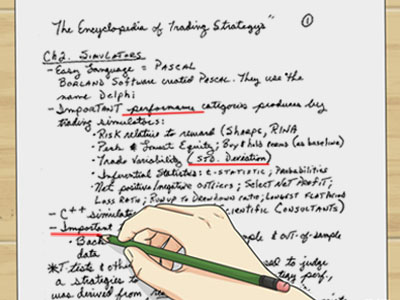 "The Encyclopedia of Trading Strategys" ①
Ch2. SIMULATORS
- Easy Language = PASCAL
BORLAND Software created PASCAL. They use the
name Delphi
- IMPORTANT performance categories produces by
trading simulators:
• RISK relative to reward (Sharpe, RINA
• Peak & Lowest Equity; Buy & hold
• Trade Variability (STD. Deviation)
• Inferential Statistics: t-STATISTIC; Probabilities
• Net positive/negative outliers; Select NET PROFIT;
Loss RATIO; RUNUP to DRAWDOWN RATIO; LONGEST FLAT
- C++ simulat (SCIENTIFIC CONSULTANTS)
- Important
• Back ple & out-of-sample
data
*T-tests & othe ed to judge
a strategies to perf.,
was derived from